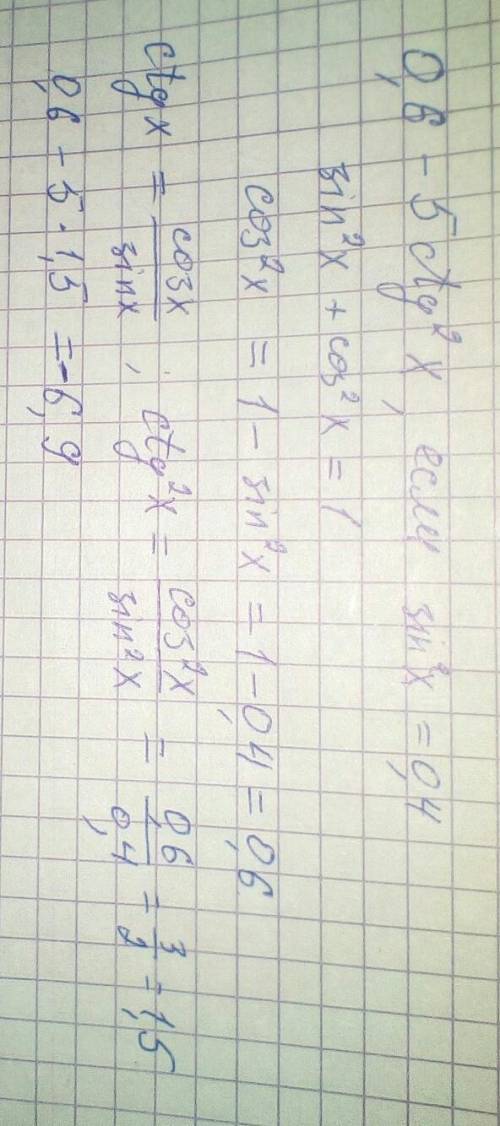 0,6 - 5 ctg²x, если sin²x = 0,4
sin²x + cos²x = 1
cos²x = 1 - sin²x = 1 - 0,4 = 0,6
ctg x = cosx/sinx, ctg²x = cos²x/sin²x = 0,6/0,4 = 3/2 = 1,5
0,6 - 5 · 1,5 = -6,9